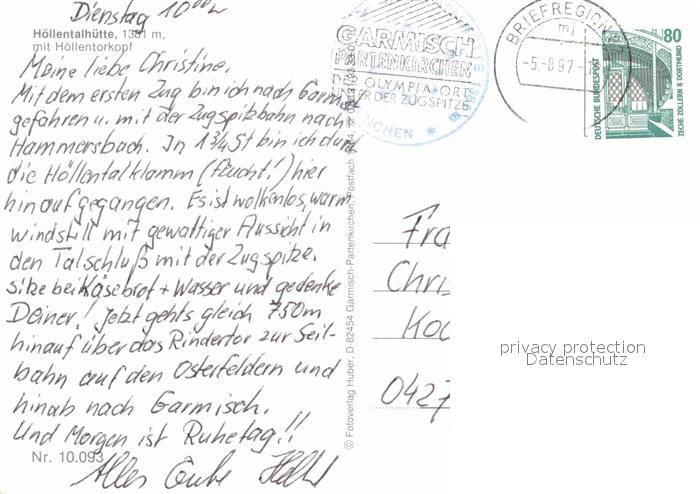 Dienstag 10⁰⁰
Höllentalhütte, 1381 m,
mit Höllentorkopf
Meine liebe Christine,
Mit dem ersten Zug bin ich nach Garm
gefahren u. mit der Zugspitzbahn nach
Hammersbach. In 1¾ St bin ich durch
die Höllentalklamm (feucht!) hier
hinaufgegangen. Es ist wolkenlos, warm
windstill mit gewaltiger Aussicht in
den Talschluß mit der Zugspitze.
Sitze bei Käsebrot + Wasser und gedenke
Deiner! Jetzt gehts gleich 750m
hinauf über das Rindertor zur Seil-
bahn auf den Osterfeldern und
hinab nach Garmisch.
Und Morgen ist Ruhetag!!
Nr. 10.093
Alles Gute
© Fotoverlag Huber, D-82454 Garmisch-Partenkirchen, Postfach
GARMISCH
PARTENKIRCHEN
OLYMPIAORT
ZUGSPITZE
MÜNCHEN
BRIEFREGION
-5.-8.97-
80
DEUTSCHE BUNDESPOST
ZECHE ZOLLERN II DORTMUND
Fra
Chris
Koc
0427
privacy protection
Datenschutz